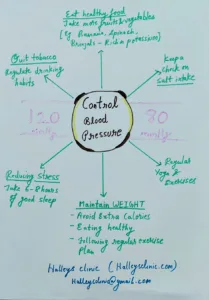 Eat healthy food
Take more fruits & vegetables
(eg Banana, Spinach,
Brinjals - Rich a potassium)
Quit tobacco
Regulate drinking
habits
Keep a
check on
Salt intake
120
mmHg
Control
Blood
Pressure
80
mmHg
Reducing stress
Take 6-8 hours
of good sleep
Regular
Yoga &
Exercises
Maintain WEIGHT
- Avoid Extra Calories
- Eating healthy
- Following regular exercise
plan
Halleys clinic (Halleysclinic.com)
Halleysclinic@gmail.com